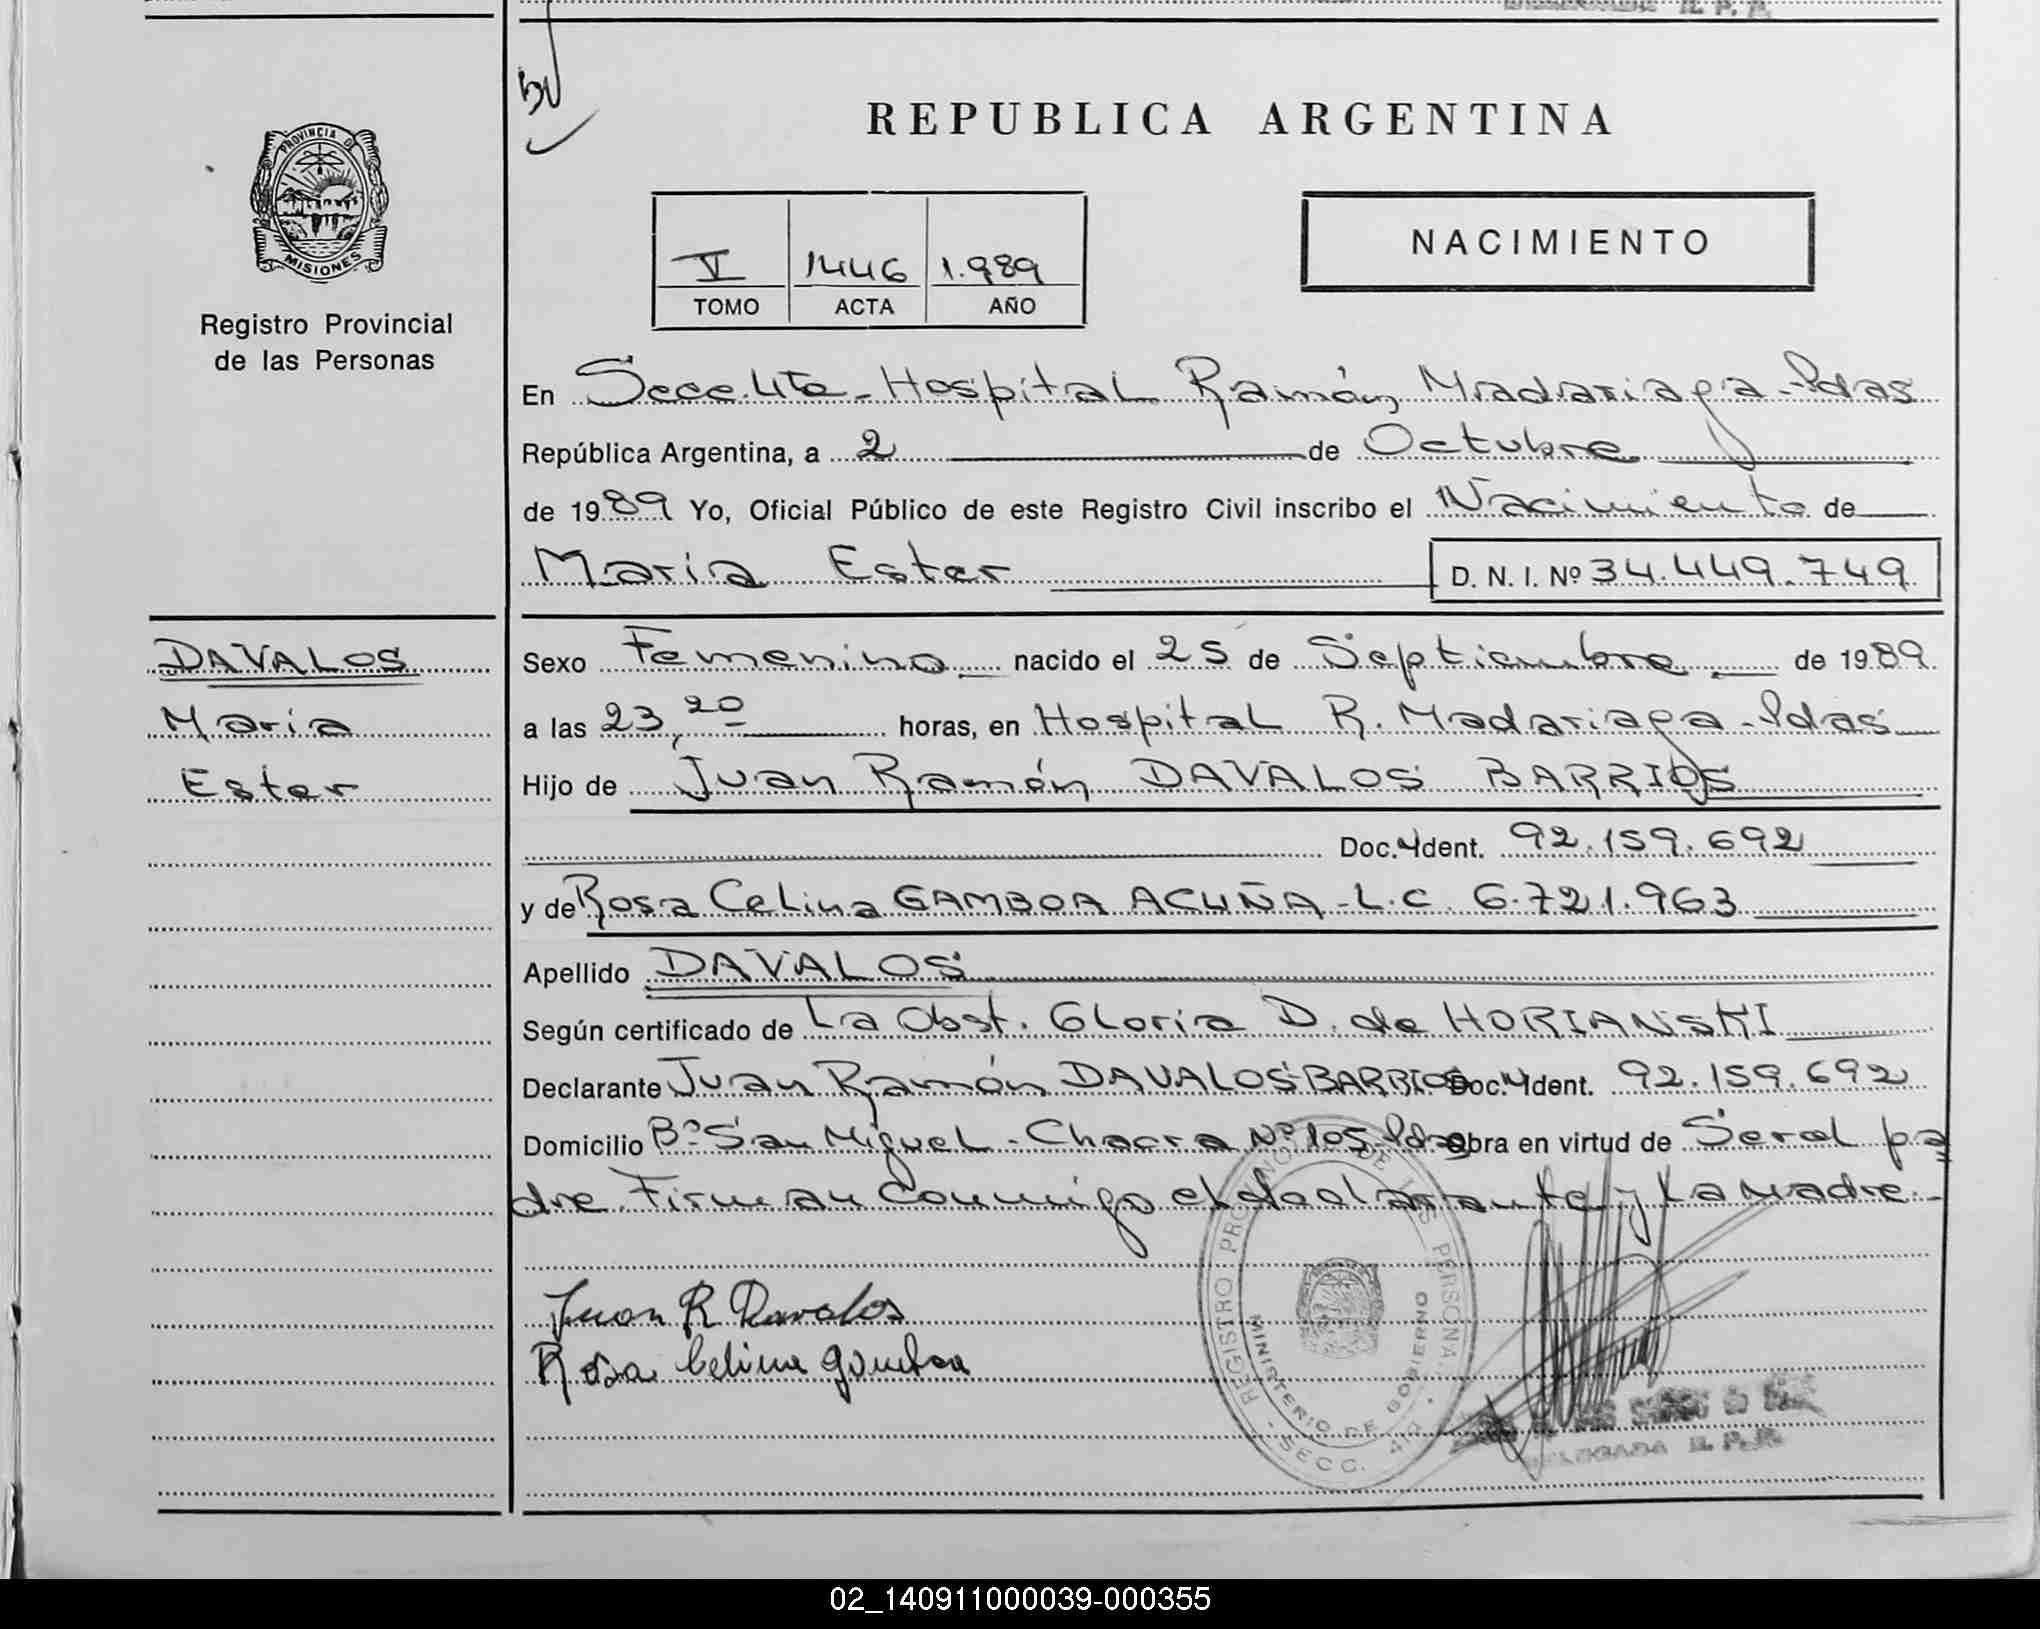 REPUBLICA ARGENTINA
PROVINCIA DE
MISIONES
Registro Provincial
de las Personas
V 1446 1.989
TOMO ACTA AÑO
NACIMIENTO
En Secc. 4ta - Hospital Ramón Madariaga - Pdas
República Argentina, a 2 de Octubre
de 1989 Yo, Oficial Público de este Registro Civil inscribo el Nacimiento de
Maria Ester D. N. I. Nº 34.449.749
DAVALOS
Maria
Ester
Sexo Femenino nacido el 25 de Septiembre de 1989
a las 23,20 horas, en Hospital R. Madariaga - Pdas
Hijo de Juan Ramón DAVALOS BARRIOS
Doc. Ident. 92.159.692
y de Rosa Celina GAMBOA ACUÑA - L.C. 6.721.963
Apellido DAVALOS
Según certificado de La Obst. Gloria D. de HORIANSKI
Declarante Juan Ramón DAVALOS BARRIOS Doc. Ident. 92.159.692
Domicilio Bº San Miguel - Chacra Nº 105 - Pdas obra en virtud de Ser el pa
dre. Firman conmigo el declarante y La Madre.
Juan R Davalos
Rosa Celina Gamboa
REGISTRO PROVINCIAL DE LAS PERSONAS
MINISTERIO DE GOBIERNO
SECC.
DELEGADA R. P. P.
02_140911000039-000355